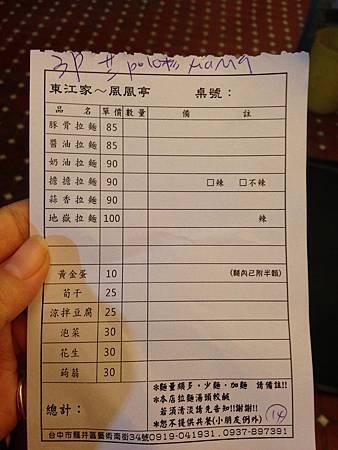 東江家～風風亭 桌號：
品 名 單價 數量 備 註
豚骨拉麵 85
醬油拉麵 85
奶油拉麵 90
擔擔拉麵 90 □辣 □不辣
蒜香拉麵 90
地獄拉麵 100 辣
黃金蛋 10 (麵內已附半顆)
筍干 25
涼拌豆腐 25
泡菜 30
花生 30
蒟蒻 30
總計：
*麵量頗多，少麵、加麵 請備註!!
*本店拉麵湯頭較鹹
若須清淡請先告知!!謝謝!!
*恕不提供共餐(小朋友例外)
14
台中市龍井區藝術南街34號0919-041931.0937-897391